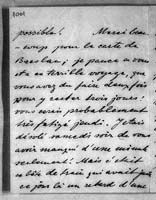 possible! Merci beau-
coup pour la carte de
Breslau; je pense à vous
et à ce terrible voyage, que
vous avez du faire deux fois
pour y rester trois jours;
vous serez probablement
très fatigé jeudi. J'étais
désolé samedi soir de vous
avoir manqué d'une minute
seulement! Mais c'était
de train qui avait
ce jour là un retard d'une